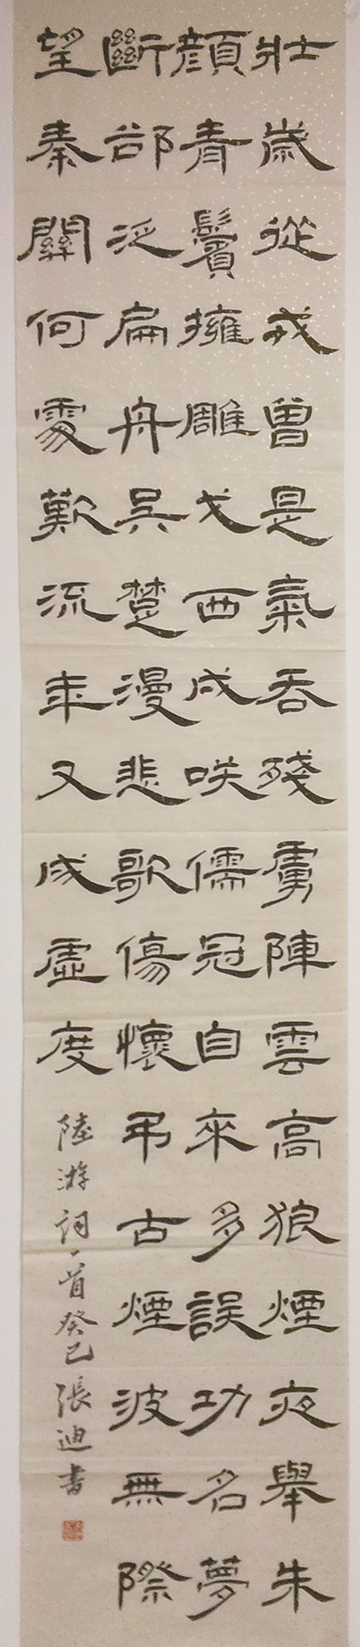 壯歲從戎曾是氣吞殘虜陣雲高狼煙夜舉朱
顏青鬢擁雕戈西戍咲儒冠自來多誤功名夢
斷卻泛扁舟吳楚漫悲歌傷懷弔古煙波無際
望秦關何處歎流年又成虛度
陸游詞一首癸巳張迪書